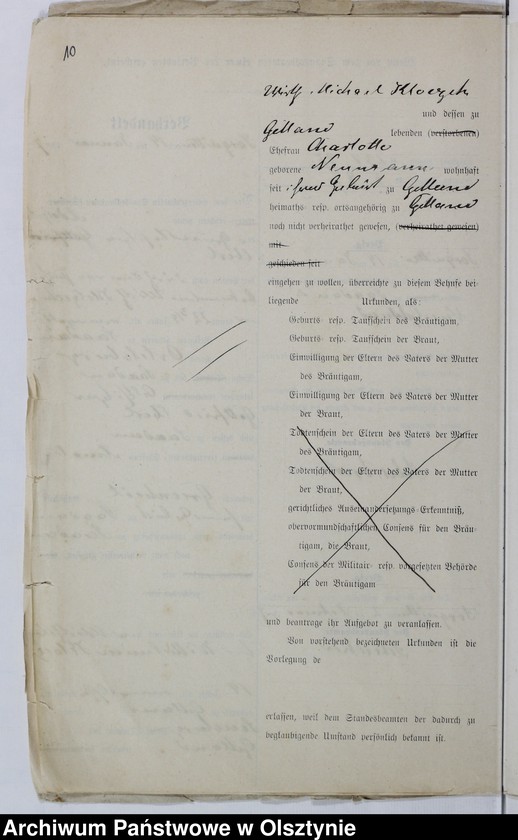 10
Wirth Michael Kloczek
und dessen zu
Gelland lebenden (verstorbenen)
Ehefrau Charlotte
geborene Neumann wohnhaft
seit ihrer Geburt zu Gelland
heimaths- resp. ortsangehörig zu Gelland
noch nicht verheirathet gewesen, (verheirathet gewesen)
mit
geschieden seit
eingehen zu wollen, überreichte zu diesem Behufe bei-
liegende Urkunden, als:
Geburts- resp. Taufschein des Bräutigam,
Geburts- resp. Taufschein der Braut,
Einwilligung der Eltern des Vaters der Mutter
des Bräutigam,
Einwilligung der Eltern des Vaters der Mutter
der Braut,
Todtenschein der Eltern des Vaters der Mutter
des Bräutigam,
Todtenschein der Eltern des Vaters der Mutter
der Braut,
gerichtliches Auseinandersetzungs-Erkenntniß,
obervormundschaftlichen Consens für den Bräu-
tigam, die Braut,
Consens der Militair- resp. vorgesetzten Behörde
für den Bräutigam
und beantrage ihr Aufgebot zu veranlassen.
Von vorstehend bezeichneten Urkunden ist die
Vorlegung de
erlassen, weil dem Standesbeamten der dadurch zu
beglaubigende Umstand persönlich bekannt ist.
Archiwum Państwowe w Olsztynie